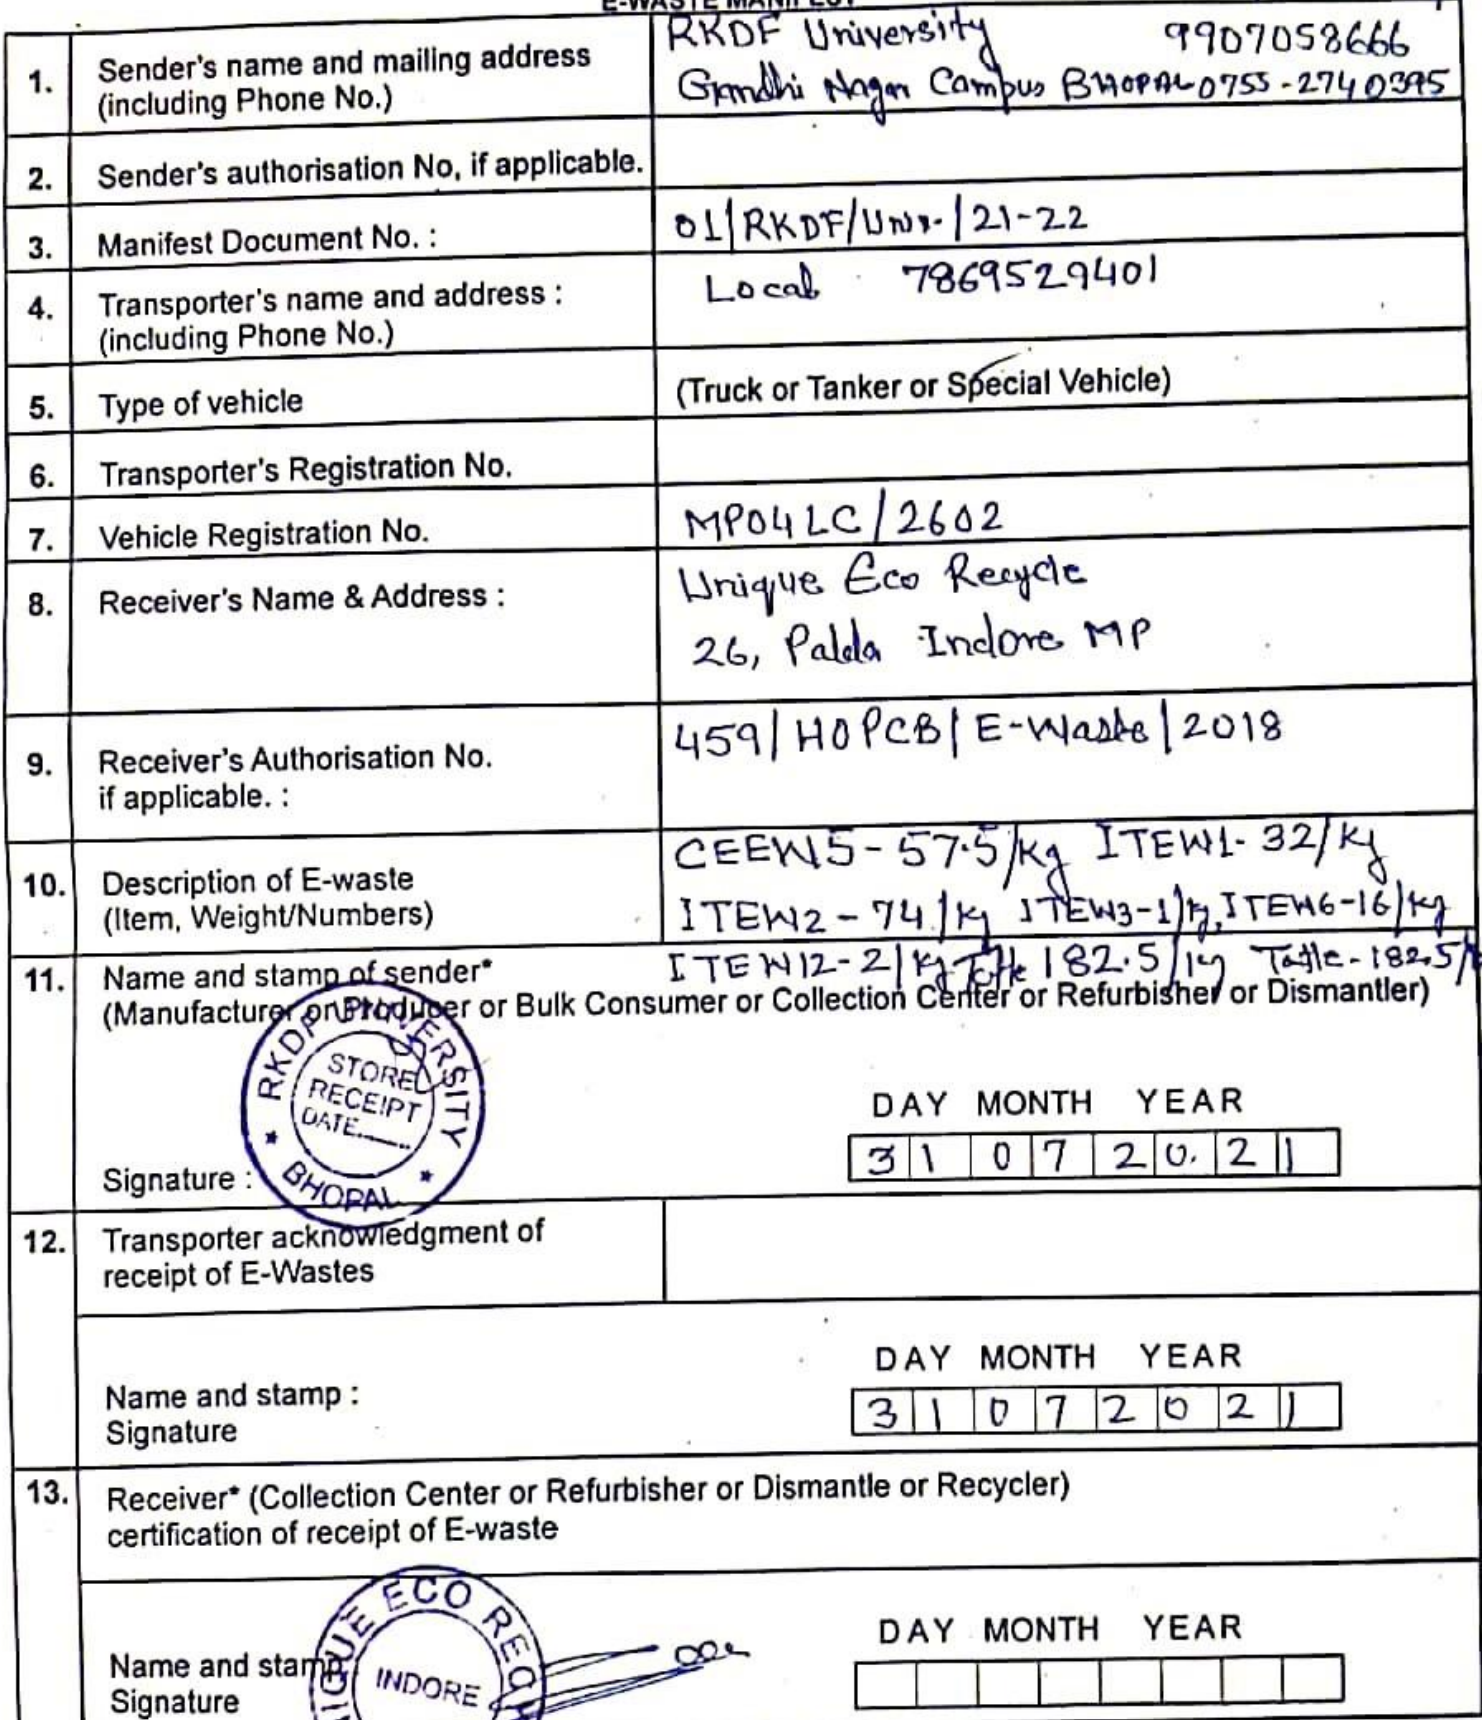 E-WASTE MANIFEST
1. Sender's name and mailing address (including Phone No.)
RKDF University 9907058666
Gandhi Nagar Campus BHOPAL 0755-2740395
2. Sender's authorisation No, if applicable.
3. Manifest Document No. : 01/RKDF/Univ./21-22
4. Transporter's name and address : (including Phone No.)
Local 7869529401
5. Type of vehicle (Truck or Tanker or Special Vehicle)
6. Transporter's Registration No.
7. Vehicle Registration No. MP04LC/2602
8. Receiver's Name & Address :
Unique Eco Recycle
26, Palda Indore MP
9. Receiver's Authorisation No. if applicable. :
459/HOPCB/E-Waste/2018
10. Description of E-waste (Item, Weight/Numbers)
CEEW5-57.5/kg ITEW1-32/kg
ITEW2-74/kg ITEW3-1/kg, ITEW6-16/kg
ITEW12-2/kg 182.5/kg 182.5/
11. Name and stamp of sender*
(Manufacturer or Producer or Bulk Consumer or Collection Center or Refurbisher or Dismantler)
RKDF UNIVERSITY
STORE
RECEIPT
DATE
* BHOPAL *
DAY MONTH YEAR
Signature : 31 07 20.21
12. Transporter acknowledgment of
receipt of E-Wastes
DAY MONTH YEAR
Name and stamp : 31 07 2021
Signature
13. Receiver* (Collection Center or Refurbisher or Dismantle or Recycler)
certification of receipt of E-waste
ECO
INDORE
DAY MONTH YEAR
Name and stamp
Signature